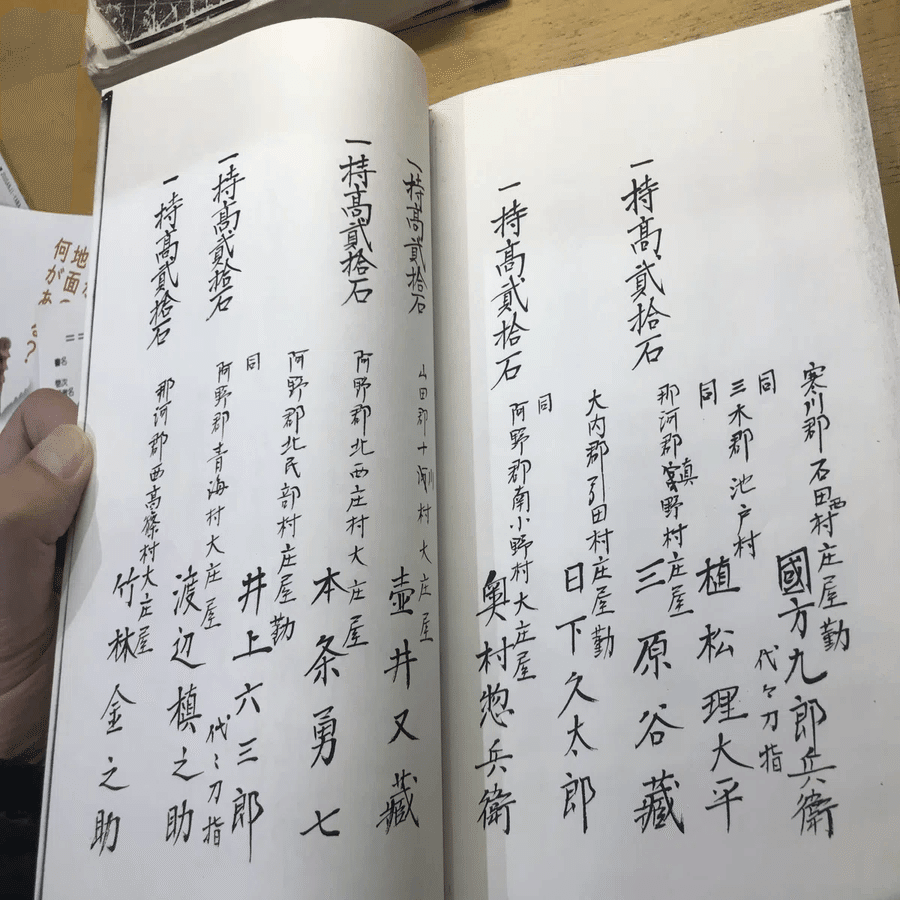 寒川郡石田西村庄屋勤
國方九郎兵衛
同
三木郡池戸村
代々刀指
植松理大平
一持高貳拾石
同
那河郡真野村庄屋
三原谷藏
大内郡引田村庄屋勤
日下久太郎
一持高貳拾石
同
阿野郡南小野村大庄屋
奥村惣兵衛
一持高貳拾石
山田郡十川村大庄屋
壺井又藏
一持高貳拾石
阿野郡北西庄村大庄屋
本条勇七
阿野郡北氏部村庄屋勤
井上六三郎
同
代々刀指
一持高貳拾石
阿野郡青海村大庄屋
渡辺槙之助
一持高貳拾石
那河郡西高篠村大庄屋
竹林金之助
地面
何が
あ
?